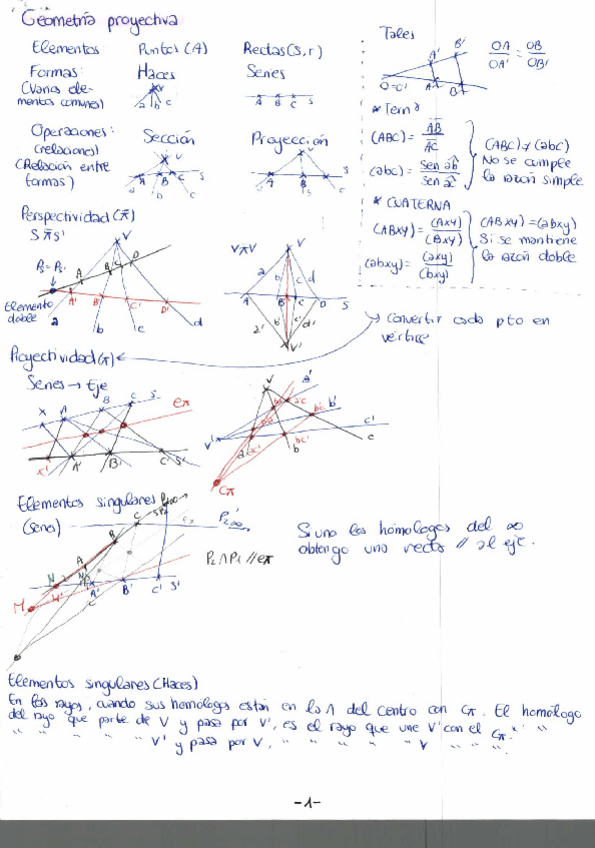 Geometría proyectiva
Elementos: Puntos (A) Rectas (s, r)
Formas: Haces Series
(Varios ele-
mentos comunes)
V
a b c
A B C s
Operaciones: Sección Proyección
(relaciones)
(Relación entre
formas)
Tales
A' B'
O=O' A B
OA/OA' = OB/OB'
* Terna
(ABC) = AB/AC
(abc) = sen ab/sen ac
(ABC) ≠ (abc)
No se cumple
la razón simple
* CUATERNA
(ABXY) = (AXY)/(BXY)
(abxy) = (axy)/(bxy)
(ABXY) = (abxy)
Si se mantiene
la razón doble
Perspectividad (⊼)
S ⊼ S'
V ⊼ V'
Elemento
doble
→ Convertir cada pto en
vértice
Proyectividad (π)
Series → Eje
eπ
Cπ
Elementos singulares
(series)
P₂ ∧ P₁ // eπ
Si uno los homólogos del ∞
obtengo una recta // al eje.
Elementos singulares (Haces)
En los rayos, cuando sus homólogos están en la ∧ del centro con Cπ. El homólogo
del rayo que parte de V y pasa por V', es el rayo que une V' con el Cπ. " "
" " " V' y pasa por V, " " " " " V " " ".
-1-